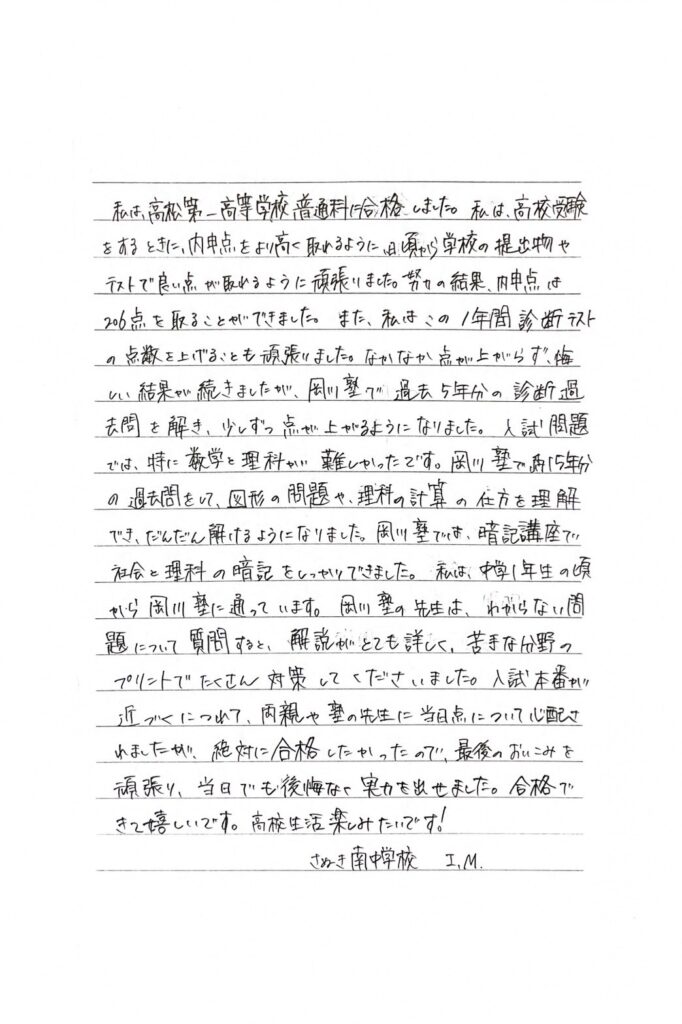 私は、高松第一高等学校普通科に合格しました。私は、高校受験
をするときに、内申点をより高く取れるように日頃から学校の提出物や
テストで良い点が取れるように頑張りました。努力の結果、内申点は
206点を取ることができました。また、私はこの1年間診断テスト
の点数を上げることも頑張りました。なかなか点が上がらず、悔
しい結果が続きましたが、岡川塾で過去5年分の診断過
去問を解き、少しずつ点が上がるようになりました。入試問題
では、特に数学と理科が難しかったです。岡川塾で約15年分
の過去問をして、図形の問題や、理科の計算の仕方を理解
でき、だんだん解けるようになりました。岡川塾では、暗記講座で
社会と理科の暗記をしっかりできました。私は、中学1年生の頃
から岡川塾に通っています。岡川塾の先生は、わからない問
題について質問すると、解説がとても詳しく、苦手な分野の
プリントでたくさん対策してくださいました。入試本番が
近づくにつれて、両親や塾の先生に当日点について心配さ
れましたが、絶対に合格したかったので、最後のおいこみを
頑張り、当日でも後悔なく実力を出せました。合格で
きて嬉しいです。高校生活楽しみたいです!
さぬき南中学校 I.M.